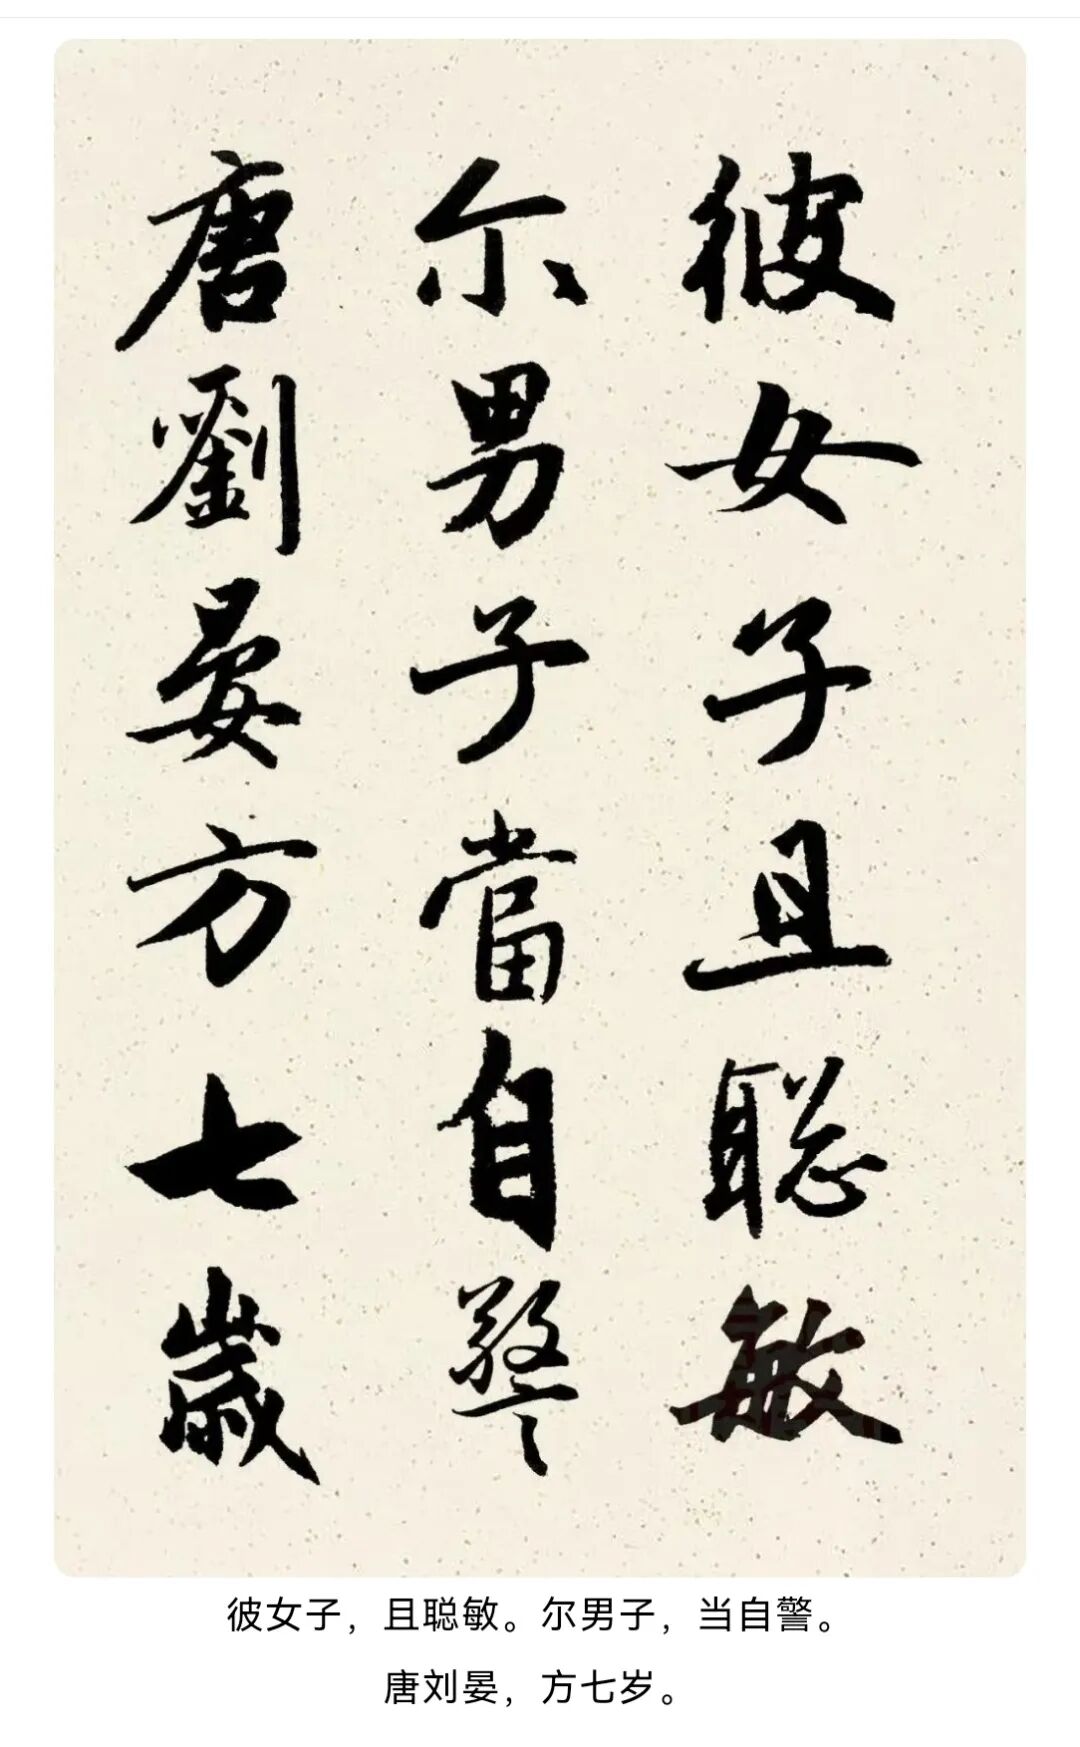 彼女子且聪敏
尔男子當自警
唐劉晏方七歲
彼女子，且聪敏。尔男子，当自警。
唐刘晏，方七岁。